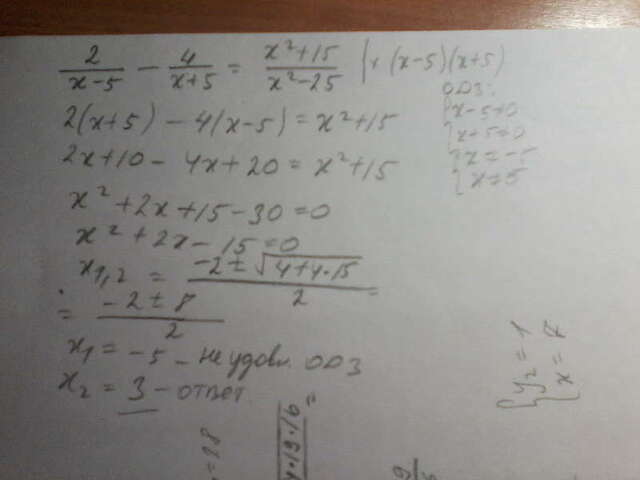 2/(x-5) - 4/(x+5) = (x²+15)/(x²-25) | * (x-5)(x+5)
ОДЗ:
2(x+5) - 4(x-5) = x²+15
{x-5≠0
{x+5≠0
2x+10 - 4x+20 = x²+15
{x≠-5
{x≠5
x²+2x+15-30=0
x²+2x-15=0
x1,2 = (-2±√(4+4·15))/2 =
= (-2±8)/2
x1 = -5 - не удовл. ОДЗ
x2 = 3 - ответ
{y2 = 1
{x =
=28
·19·16 =
9